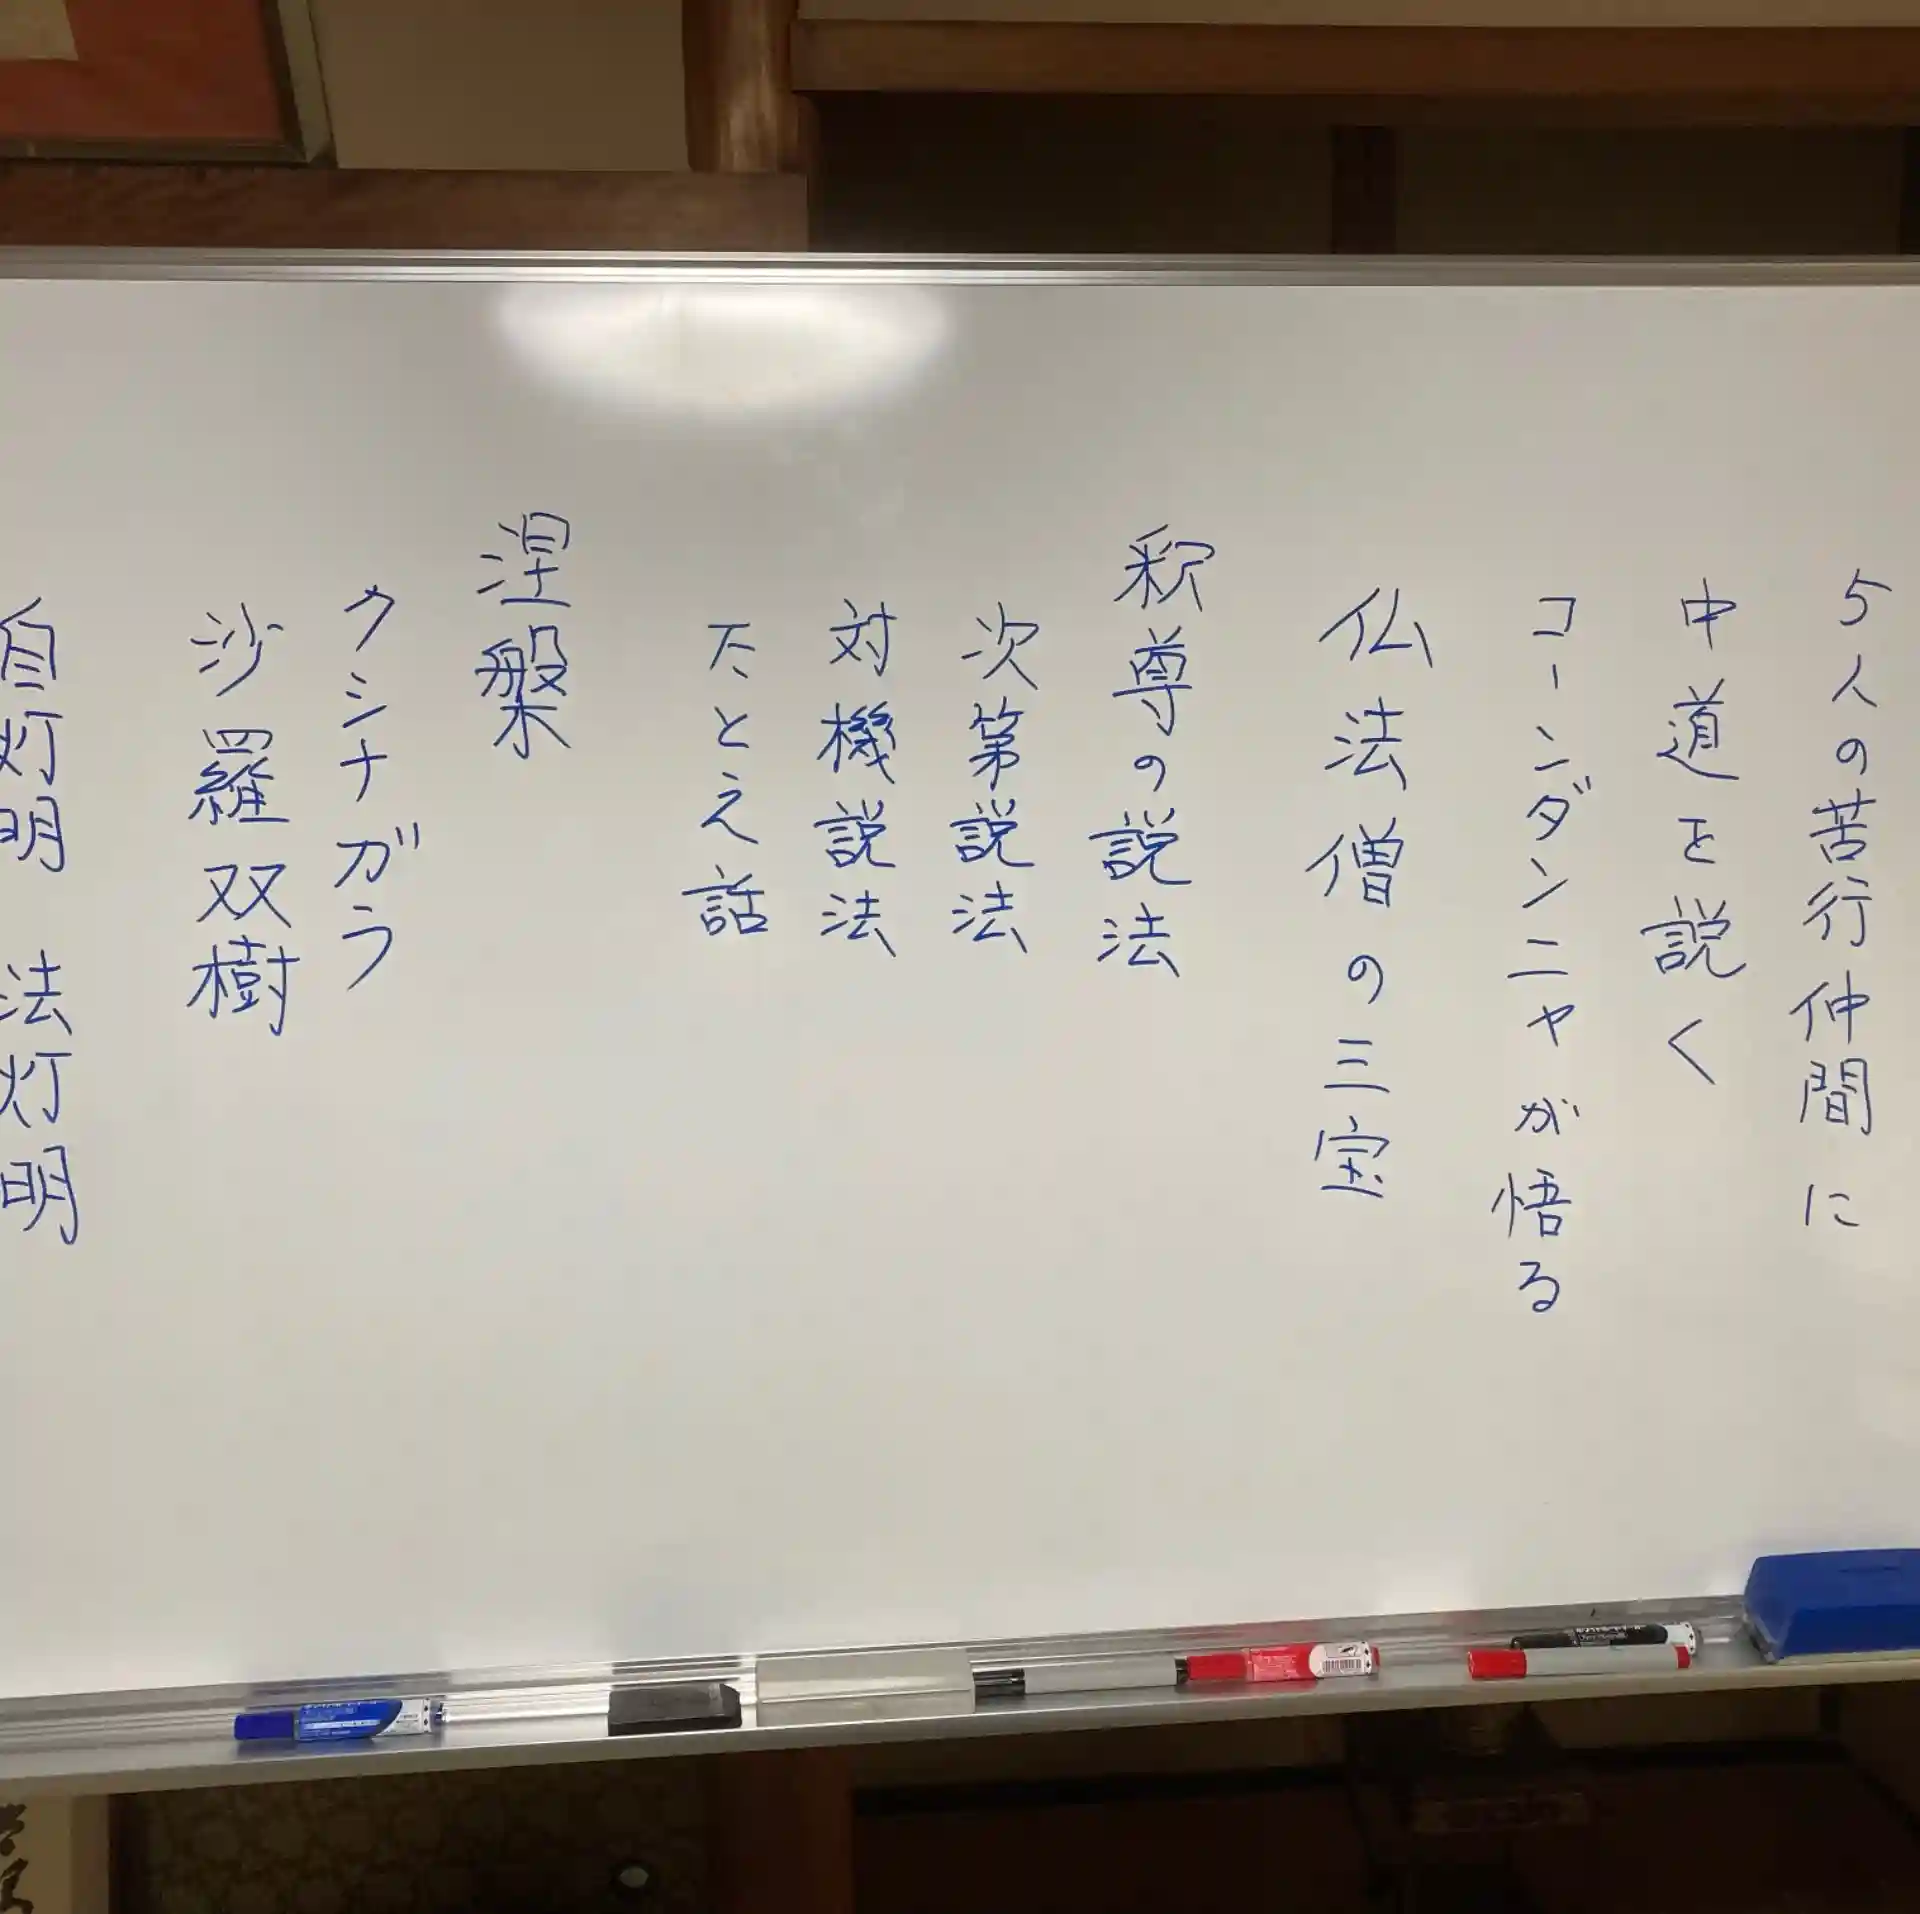 5人の苦行仲間に
中道を説く
コーンダンニャが悟る
仏法僧の三宝
釈尊の説法
次第説法
対機説法
たとえ話
涅槃
クシナガラ
沙羅双樹
自灯明 法灯明